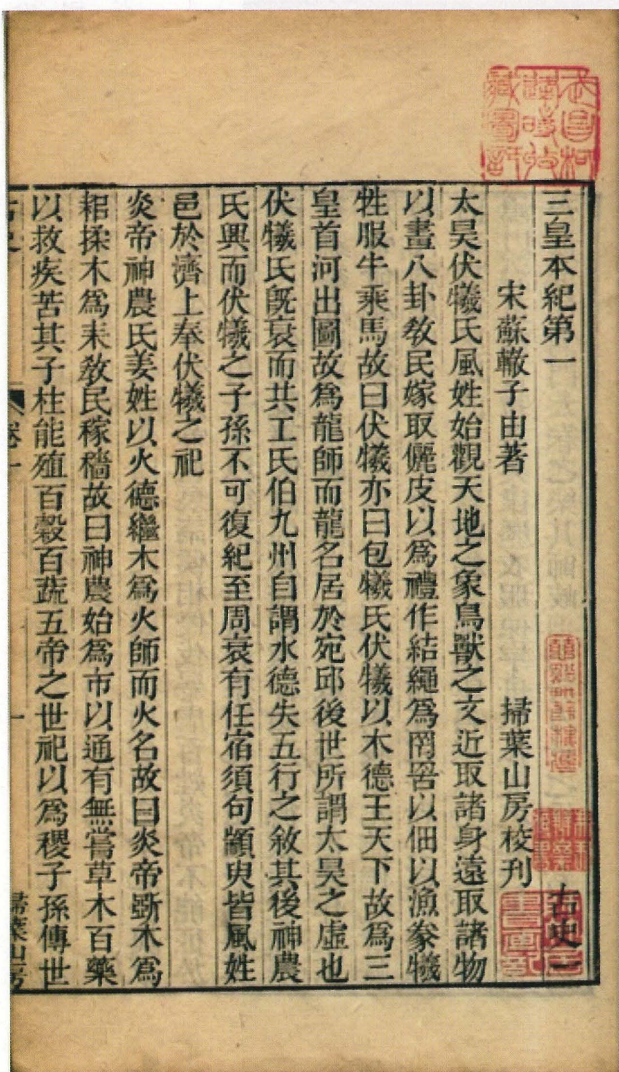 三皇本紀第一 古史一
宋蘇轍子由著 掃葉山房校刊
太昊伏犧氏風姓始觀天地之象鳥獸之文近取諸身遠取諸物
以畫八卦敎民嫁取儷皮以爲禮作結繩爲罔罟以佃以漁豢犧
牲服牛乘馬故曰伏犧亦曰包犧氏伏犧以木德王天下故爲三
皇首河出圖故爲龍師而龍名居於宛邱後世所謂太昊之虛也
伏犧氏旣衰而共工氏伯九州自謂水德失五行之敘其後神農
氏興而伏犧之子孫不可復紀至周衰有任宿須句顓臾皆風姓
邑於濟上奉伏犧之祀
炎帝神農氏姜姓以火德繼木爲火師而火名故曰炎帝斲木爲
耜揉木爲耒敎民稼穡故曰神農始爲市以通有無嘗草木百藥
以救疾苦其子柱能殖百穀百蔬五帝之世祀以爲稷子孫傳世
古史 卷一 一 掃葉山房